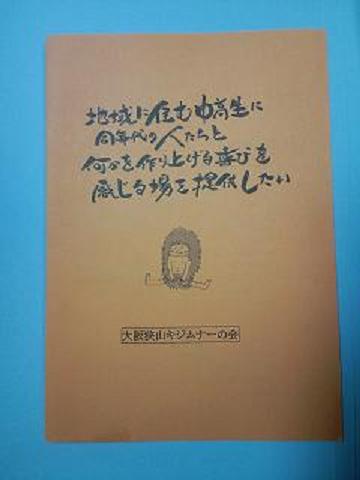 地域に住む中高生に
同年代の人たちと
何かを作り上げる喜びを
感じる場を提供したい
大阪狭山キジムナーの会